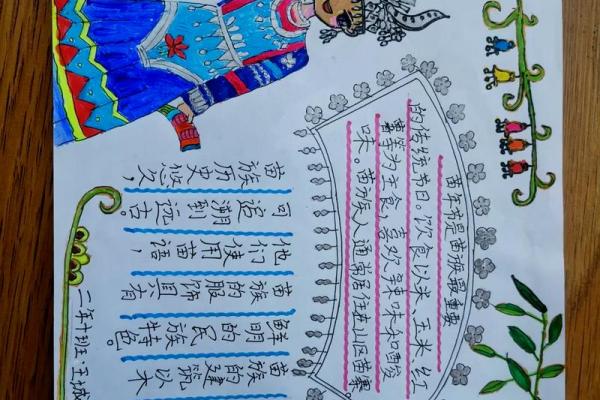 苗年节是苗族最重要
的传统节日。饮食以米、玉米、红
薯等为主食,喜欢辣味和酸
味。苗族人通常居住在山区苗寨
苗族历史悠久,
可追溯到远古。
他们使用苗语,
苗族的服饰具有
鲜明的民族特色。
苗族的建筑以木
二年十班·王